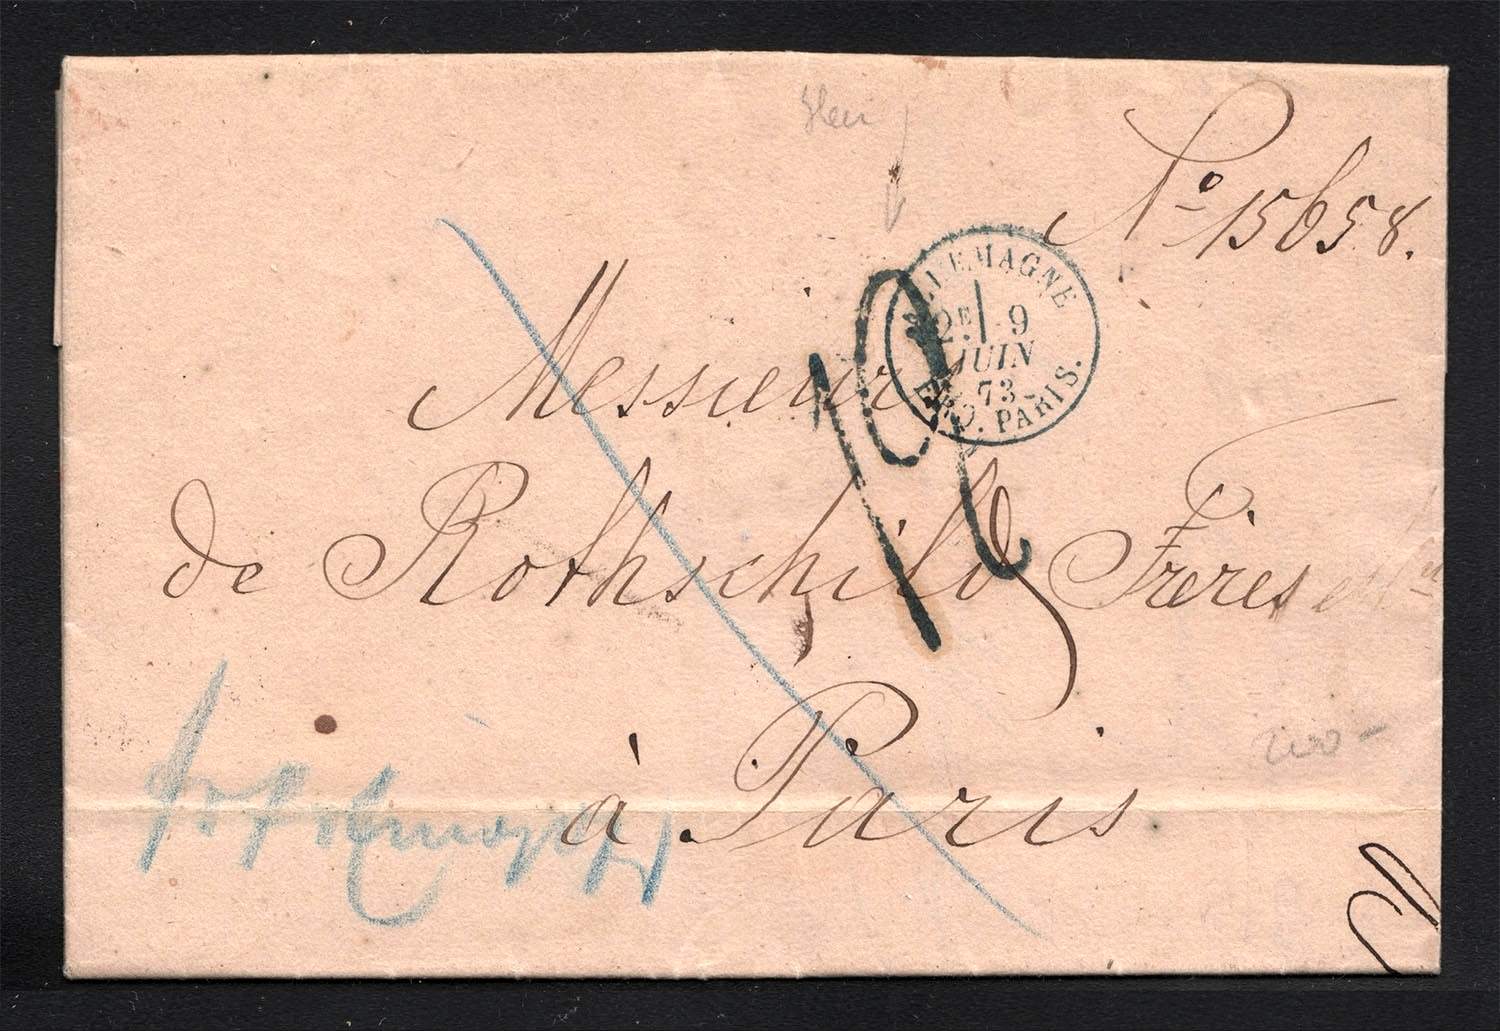 No 15658.
ALLEMAGNE
2E 9
JUIN
73
ERQ. PARIS.
Messieurs
de Rothschild Frères
à Paris